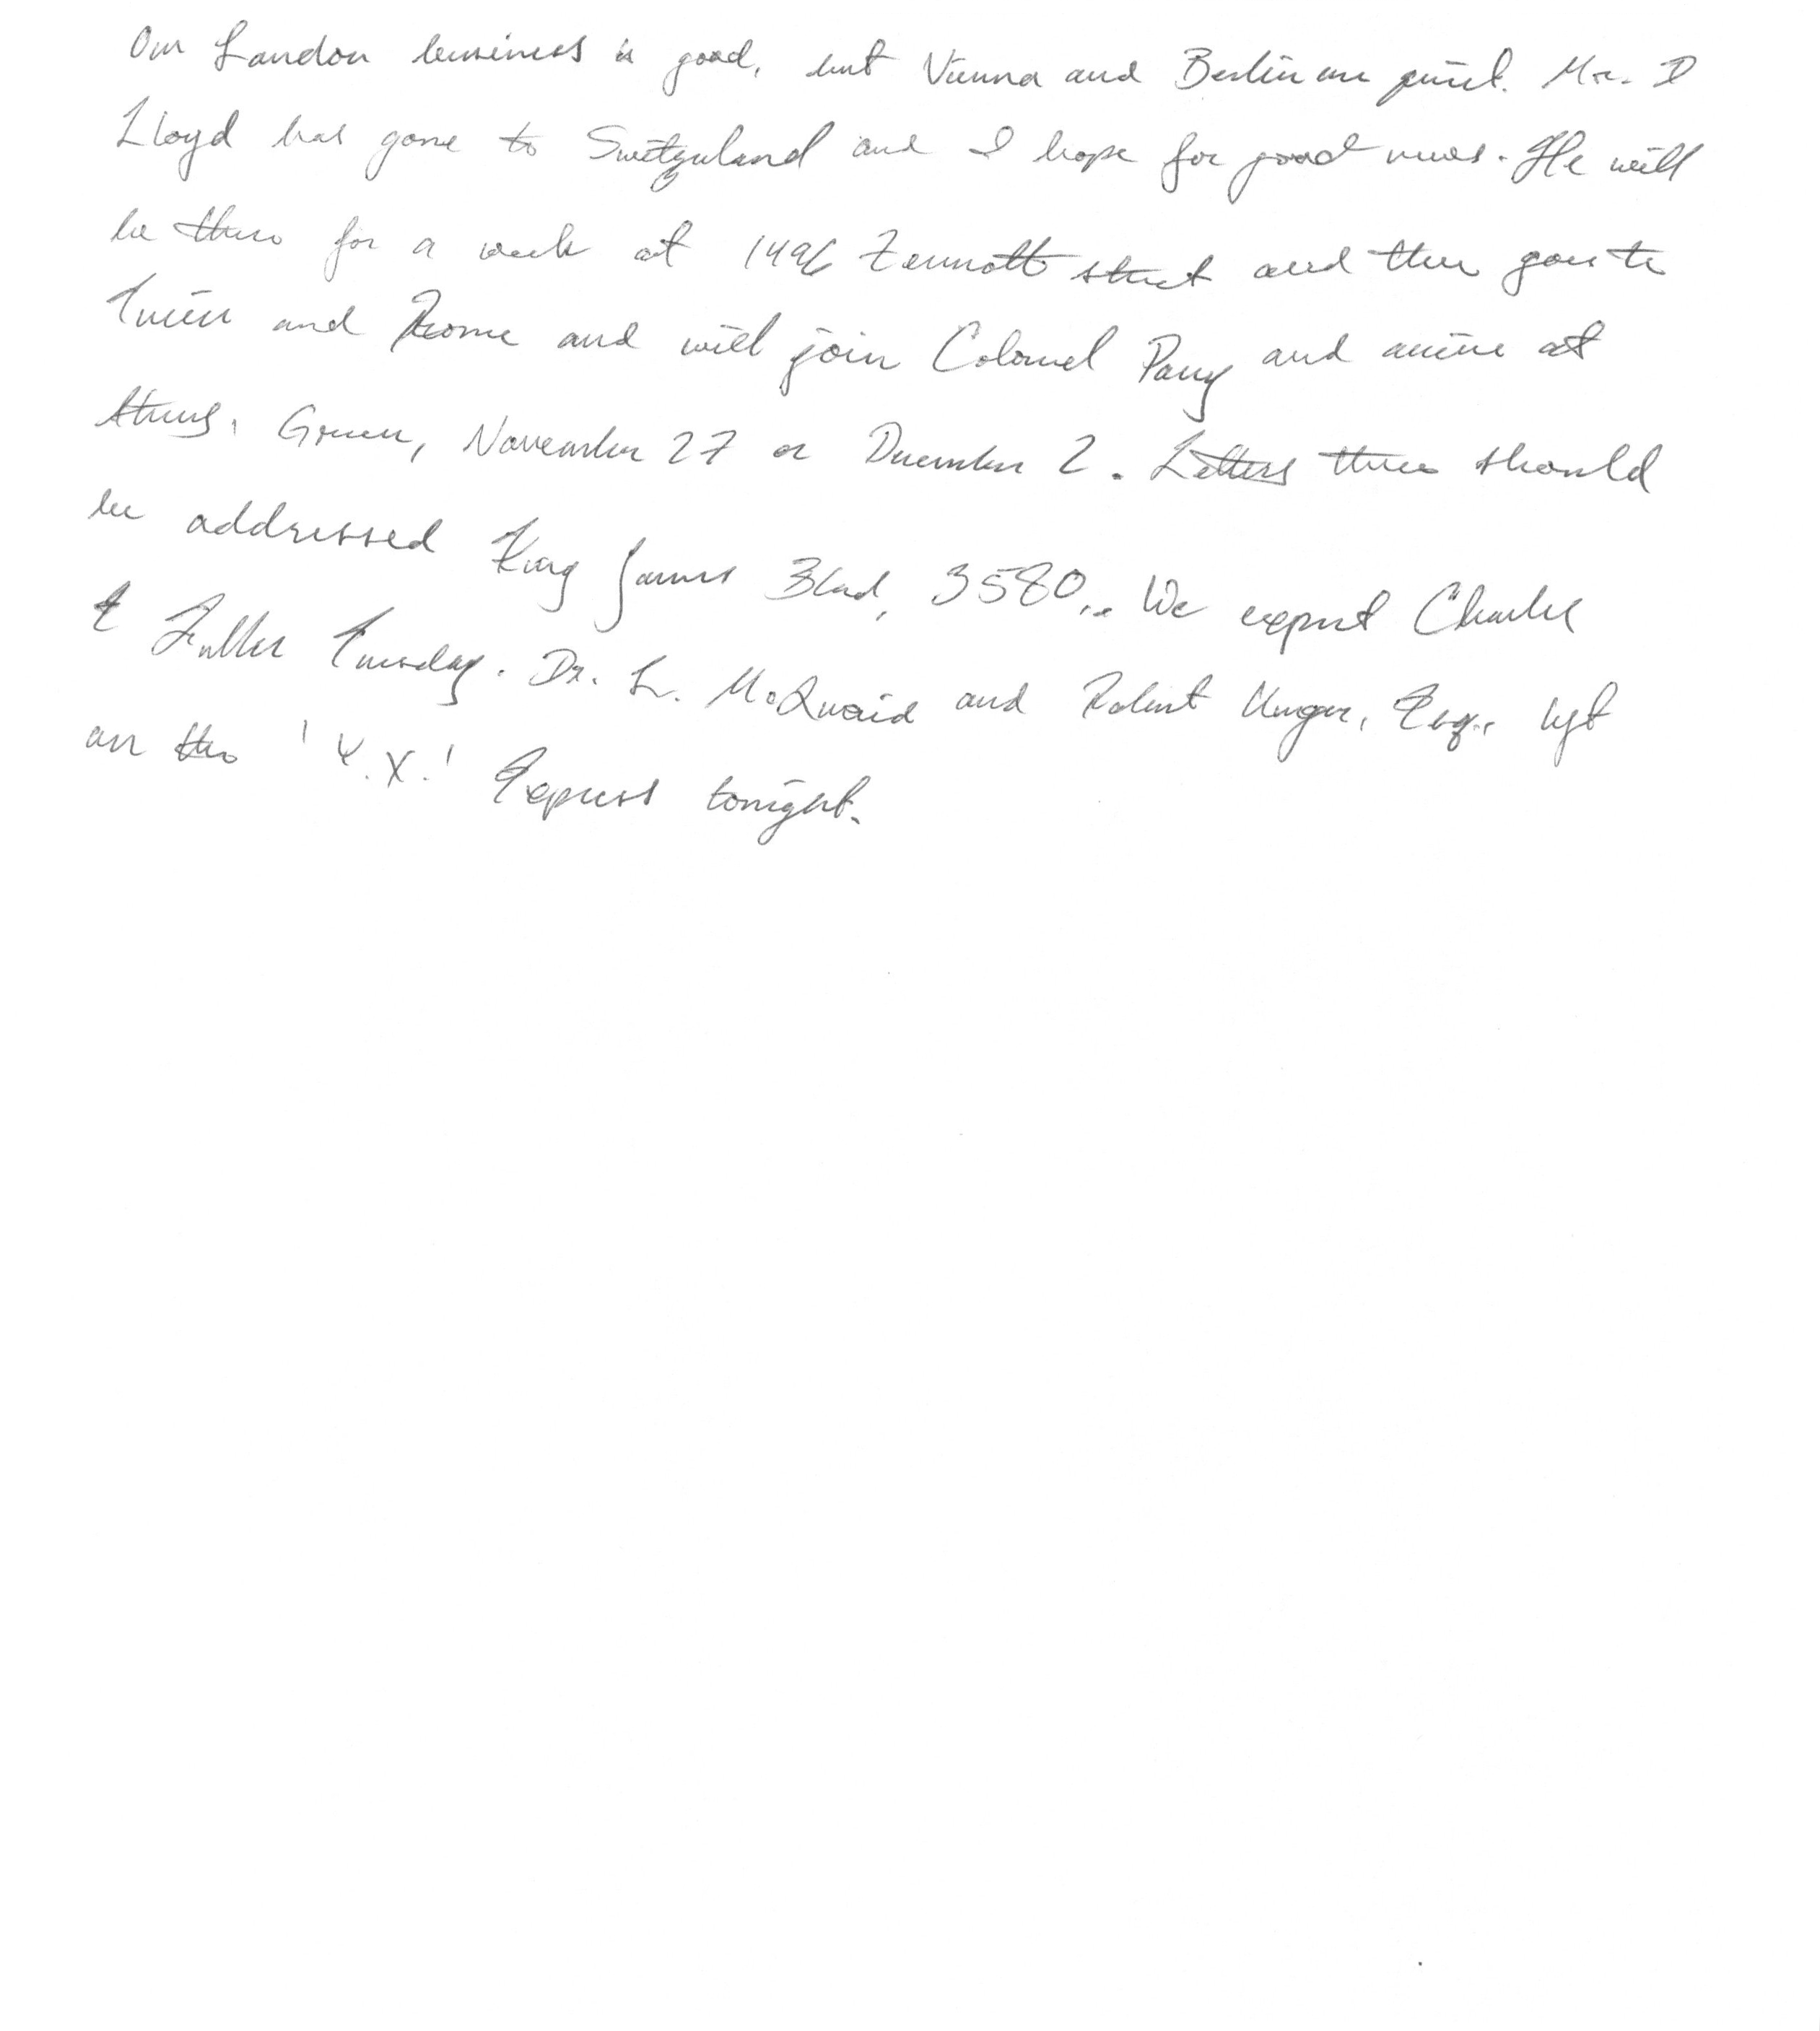 Our London business is good, but Vienna and Berlin are quiet. Mr. D
Lloyd has gone to Switzerland and I hope for good news. He will
be there for a week at 1496 Zermott street and then goes to
Turin and Rome and will join Colonel Parry and arrive at
Athens, Greece, November 27 or December 2. Letters there should
be addressed King James Blvd, 3580. We expect Charles
E Fuller Tuesday. Dr. L. McQuaid and Robert Unger, Esq., left
on the 'Y.X.' Express tonight.